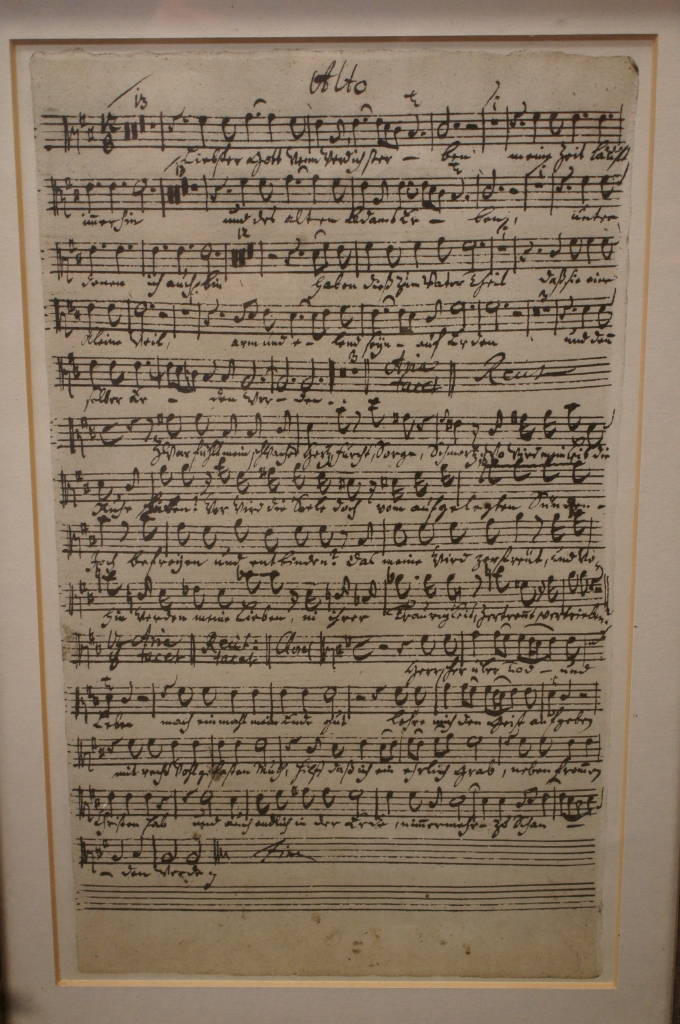 Alto
13
Liebster Gott wenn werd ich ster - ben meine Zeit läufft
13
immerhin und des alten Adams Er - ben, unter
12
denen ich auch bin haben dieß zum Vater Theil daß sie eine
3
kleine Weil, arm und e - lend seyn - auf Erden und denn
3 Aria tacet Recit
selber Er - den wer - den
Zwar fühlt mein schwaches Herz Furcht, Sorge, Schmertz, wo wird mein Leib die
Ruhe haben? Wer wird die Seele doch vom aufgelegten Sünden -
Joch befreyen und entbinden? Das meine wird zerstreut, und wo
hin werden meine Lieben, in ihrer Traurigkeit, zertrennt, vertrieben
Aria tacet Recit tacet
Herrscher über Tod - und
Leben mach einmahl mein Ende gut lehre mich den Geist aufgeben
mit recht wohlgefasten Muth, hilff daß ich ein ehrlich Grab, neben frommen
Christen hab und auch endlich in der Erde, nimmermehr zu Schan -
- den werde
Fine